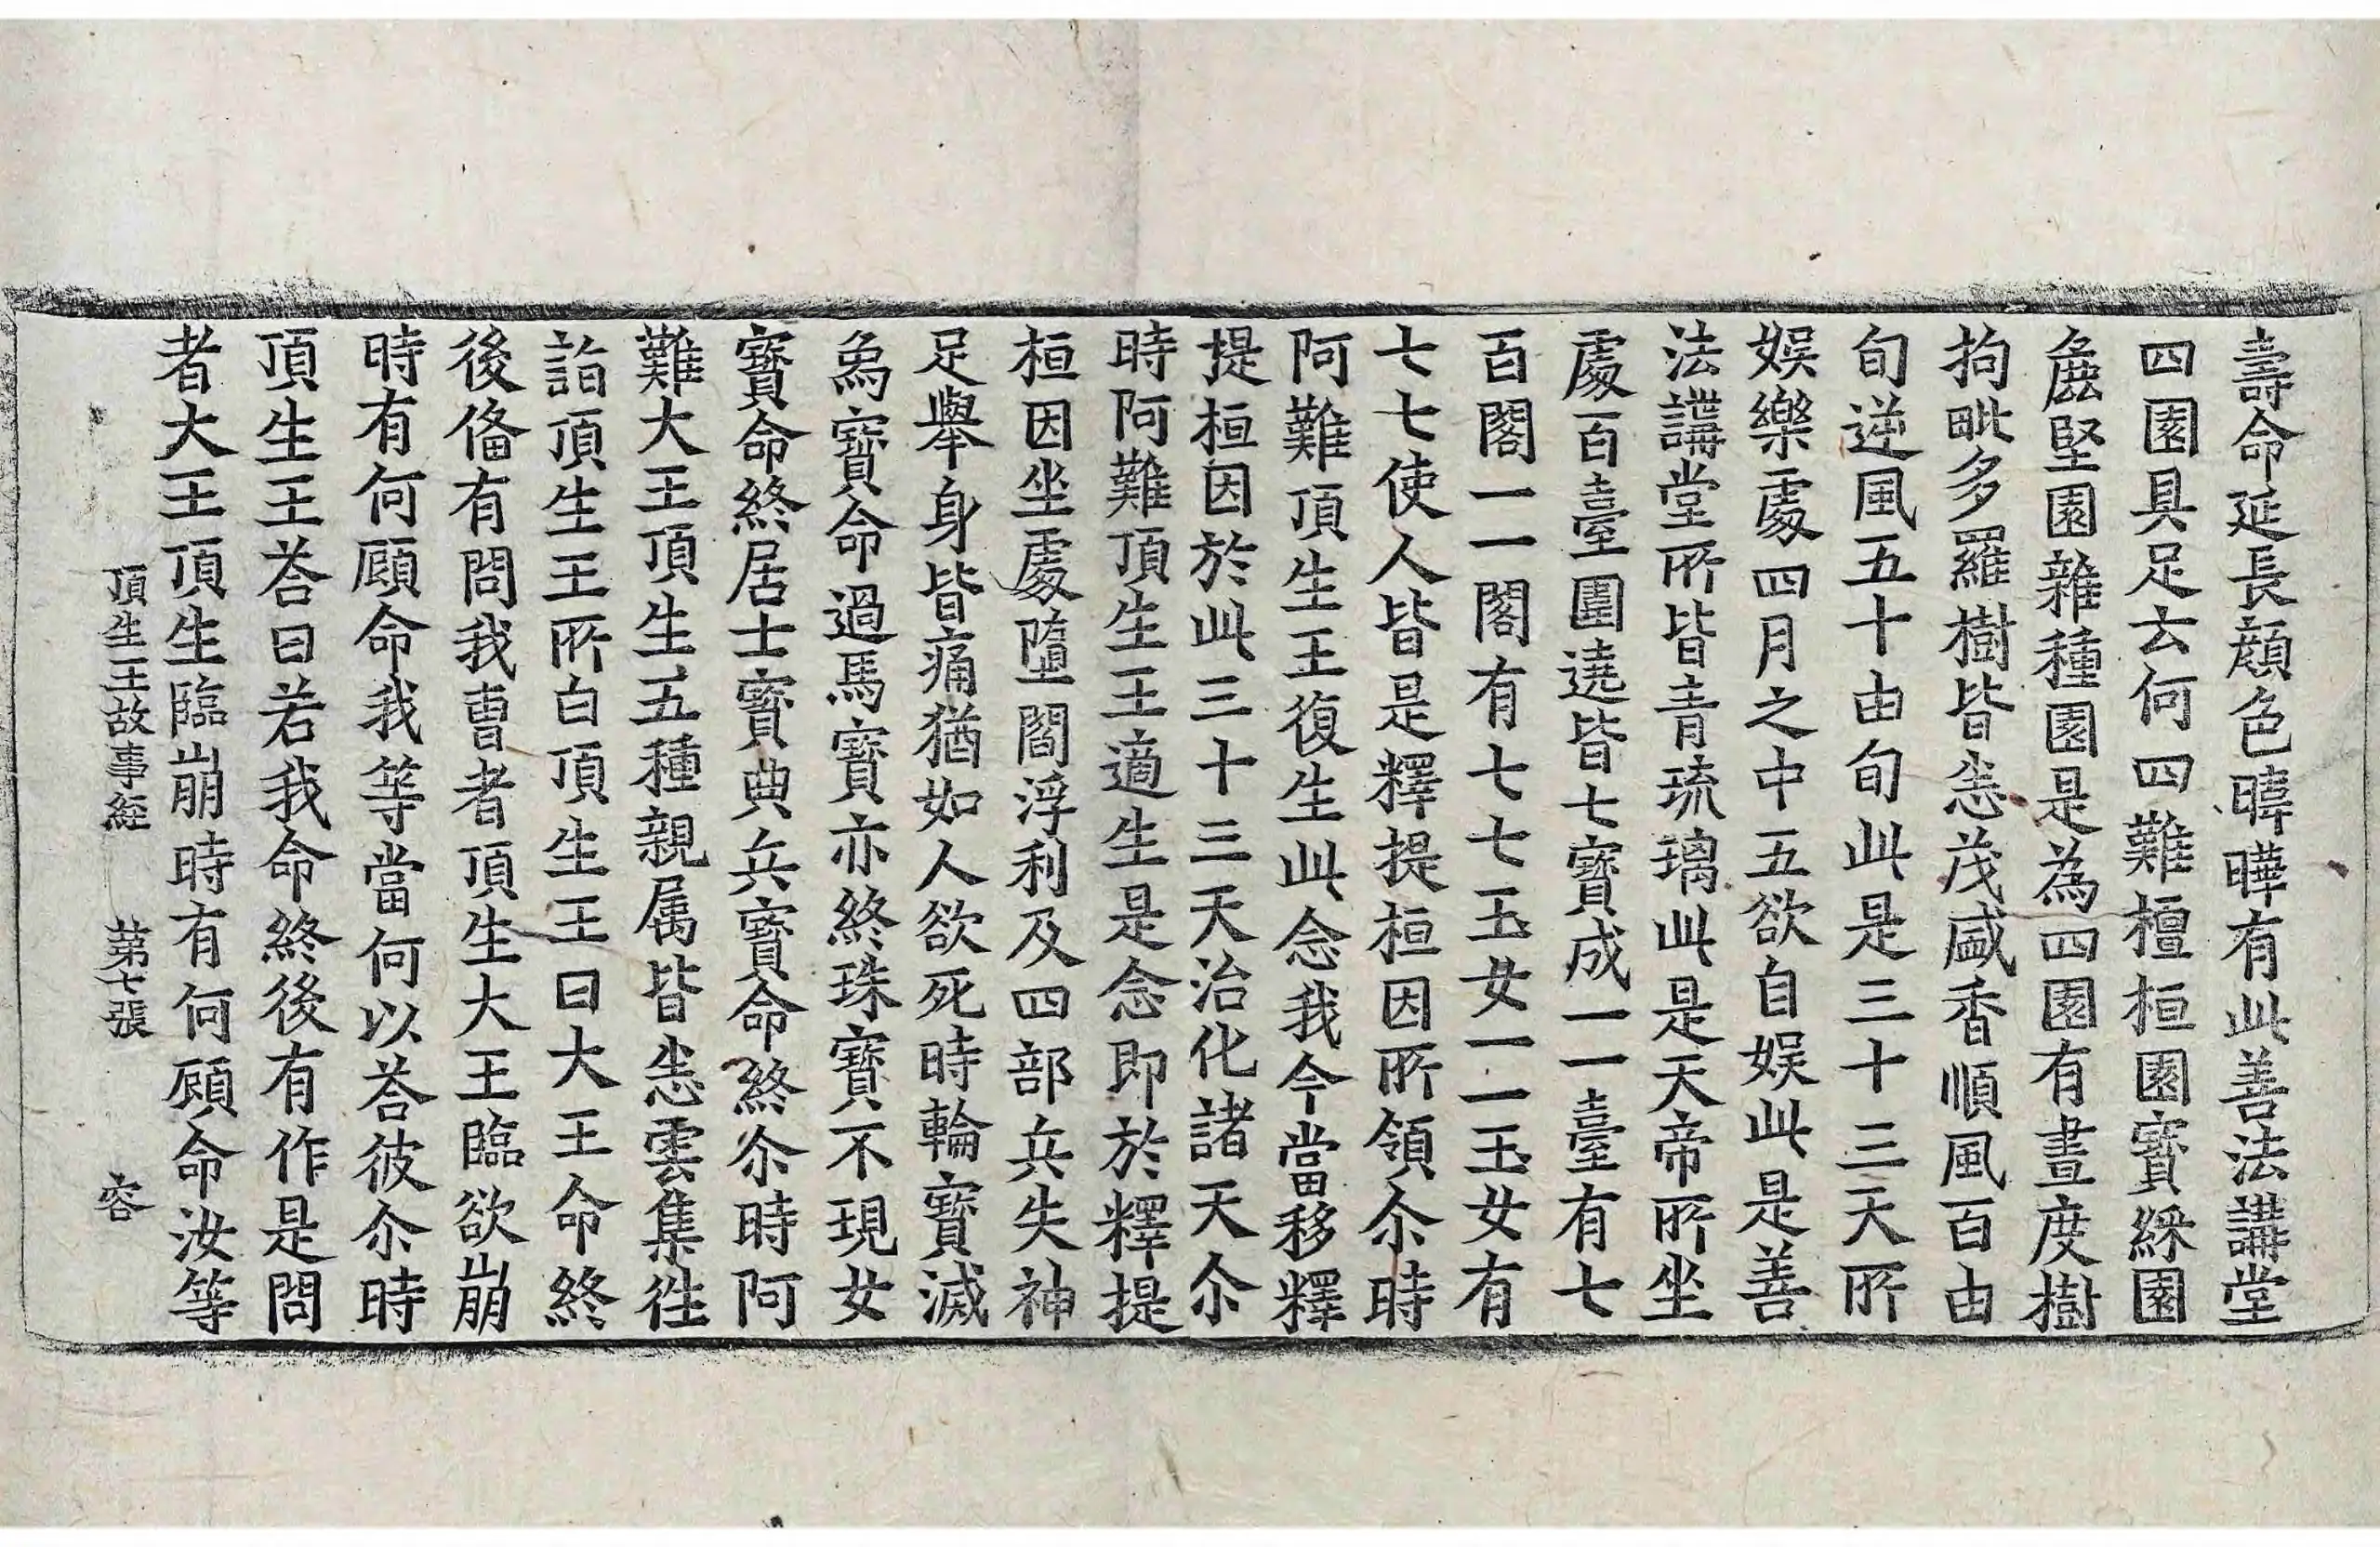 壽命延長顔色暐曄有此善法講堂
四園具足云何四難檀桓園寶綵園
麁堅園雜種園是為四園有晝度樹
拘毗多羅樹皆恙茂盛香順風百由
旬逆風五十由旬此是三十三天所
娛樂處四月之中五欲自娛此是善
法講堂所皆青琉璃此是天帝所坐
處百臺圍遶皆七寶成一一臺有七
百閣一一閣有七七玉女一一玉女有
七七使人皆是釋提桓因所領尒時
阿難頂生王復生此念我今當移釋
提桓因於此三十三天治化諸天尒
時阿難頂生王適生是念即於釋提
桓因坐處墮閻浮利及四部兵失神
足舉身皆痛猶如人欲死時輪寶滅
為寶命過馬寶亦終珠寶不現女
寶命終居士寶典兵寶命終尒時阿
難大王頂生五種親属皆恙雲集徃
詣頂生王所白頂生王曰大王命終
後俻有問我曹者頂生大王臨欲崩
時有何顧命我等當何以荅彼尒時
頂生王荅曰若我命終後有作是問
者大王頂生臨崩時有何顧命汝等
頂生王故事經 苐七張 容